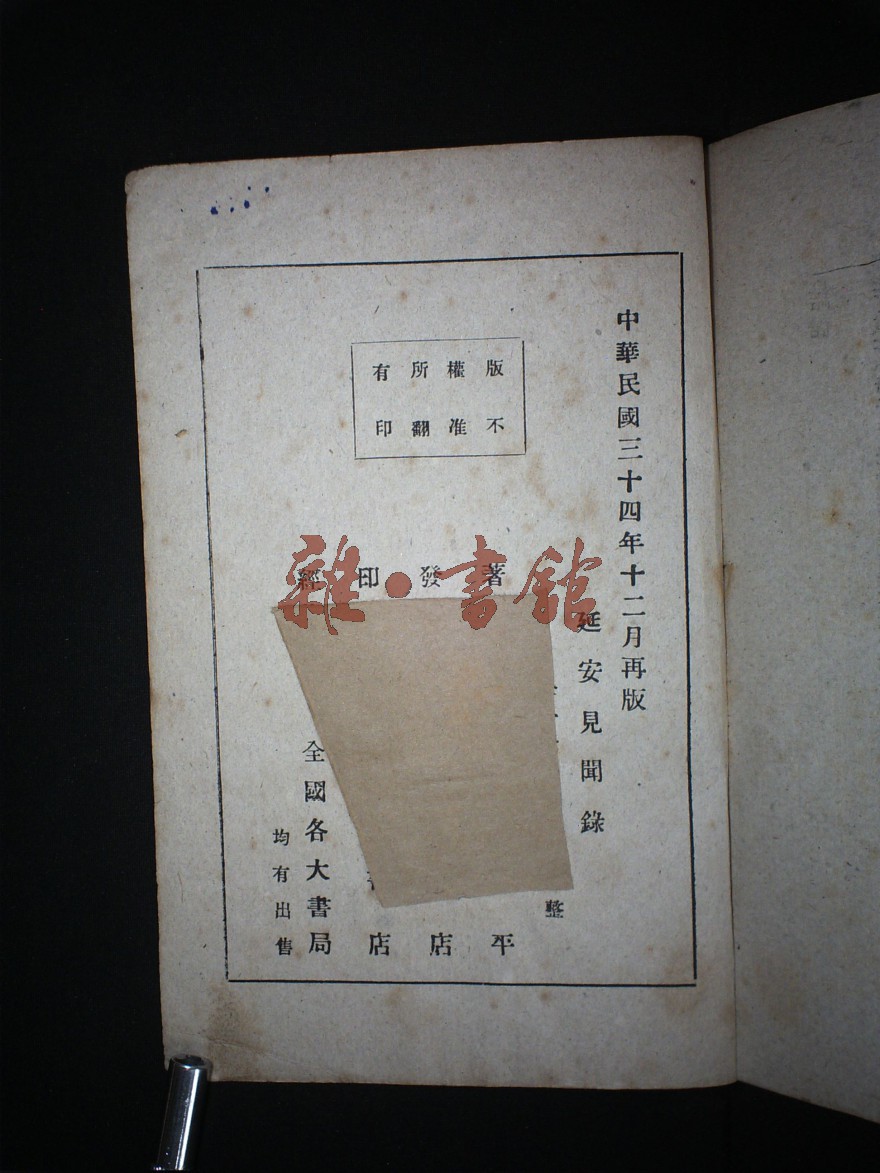 中華民國三十四年十二月再版
延安見聞錄
整
版權所有
不准翻印
著
平
發
店
印
店
經
全國各大書局
均有出售
雜·書館